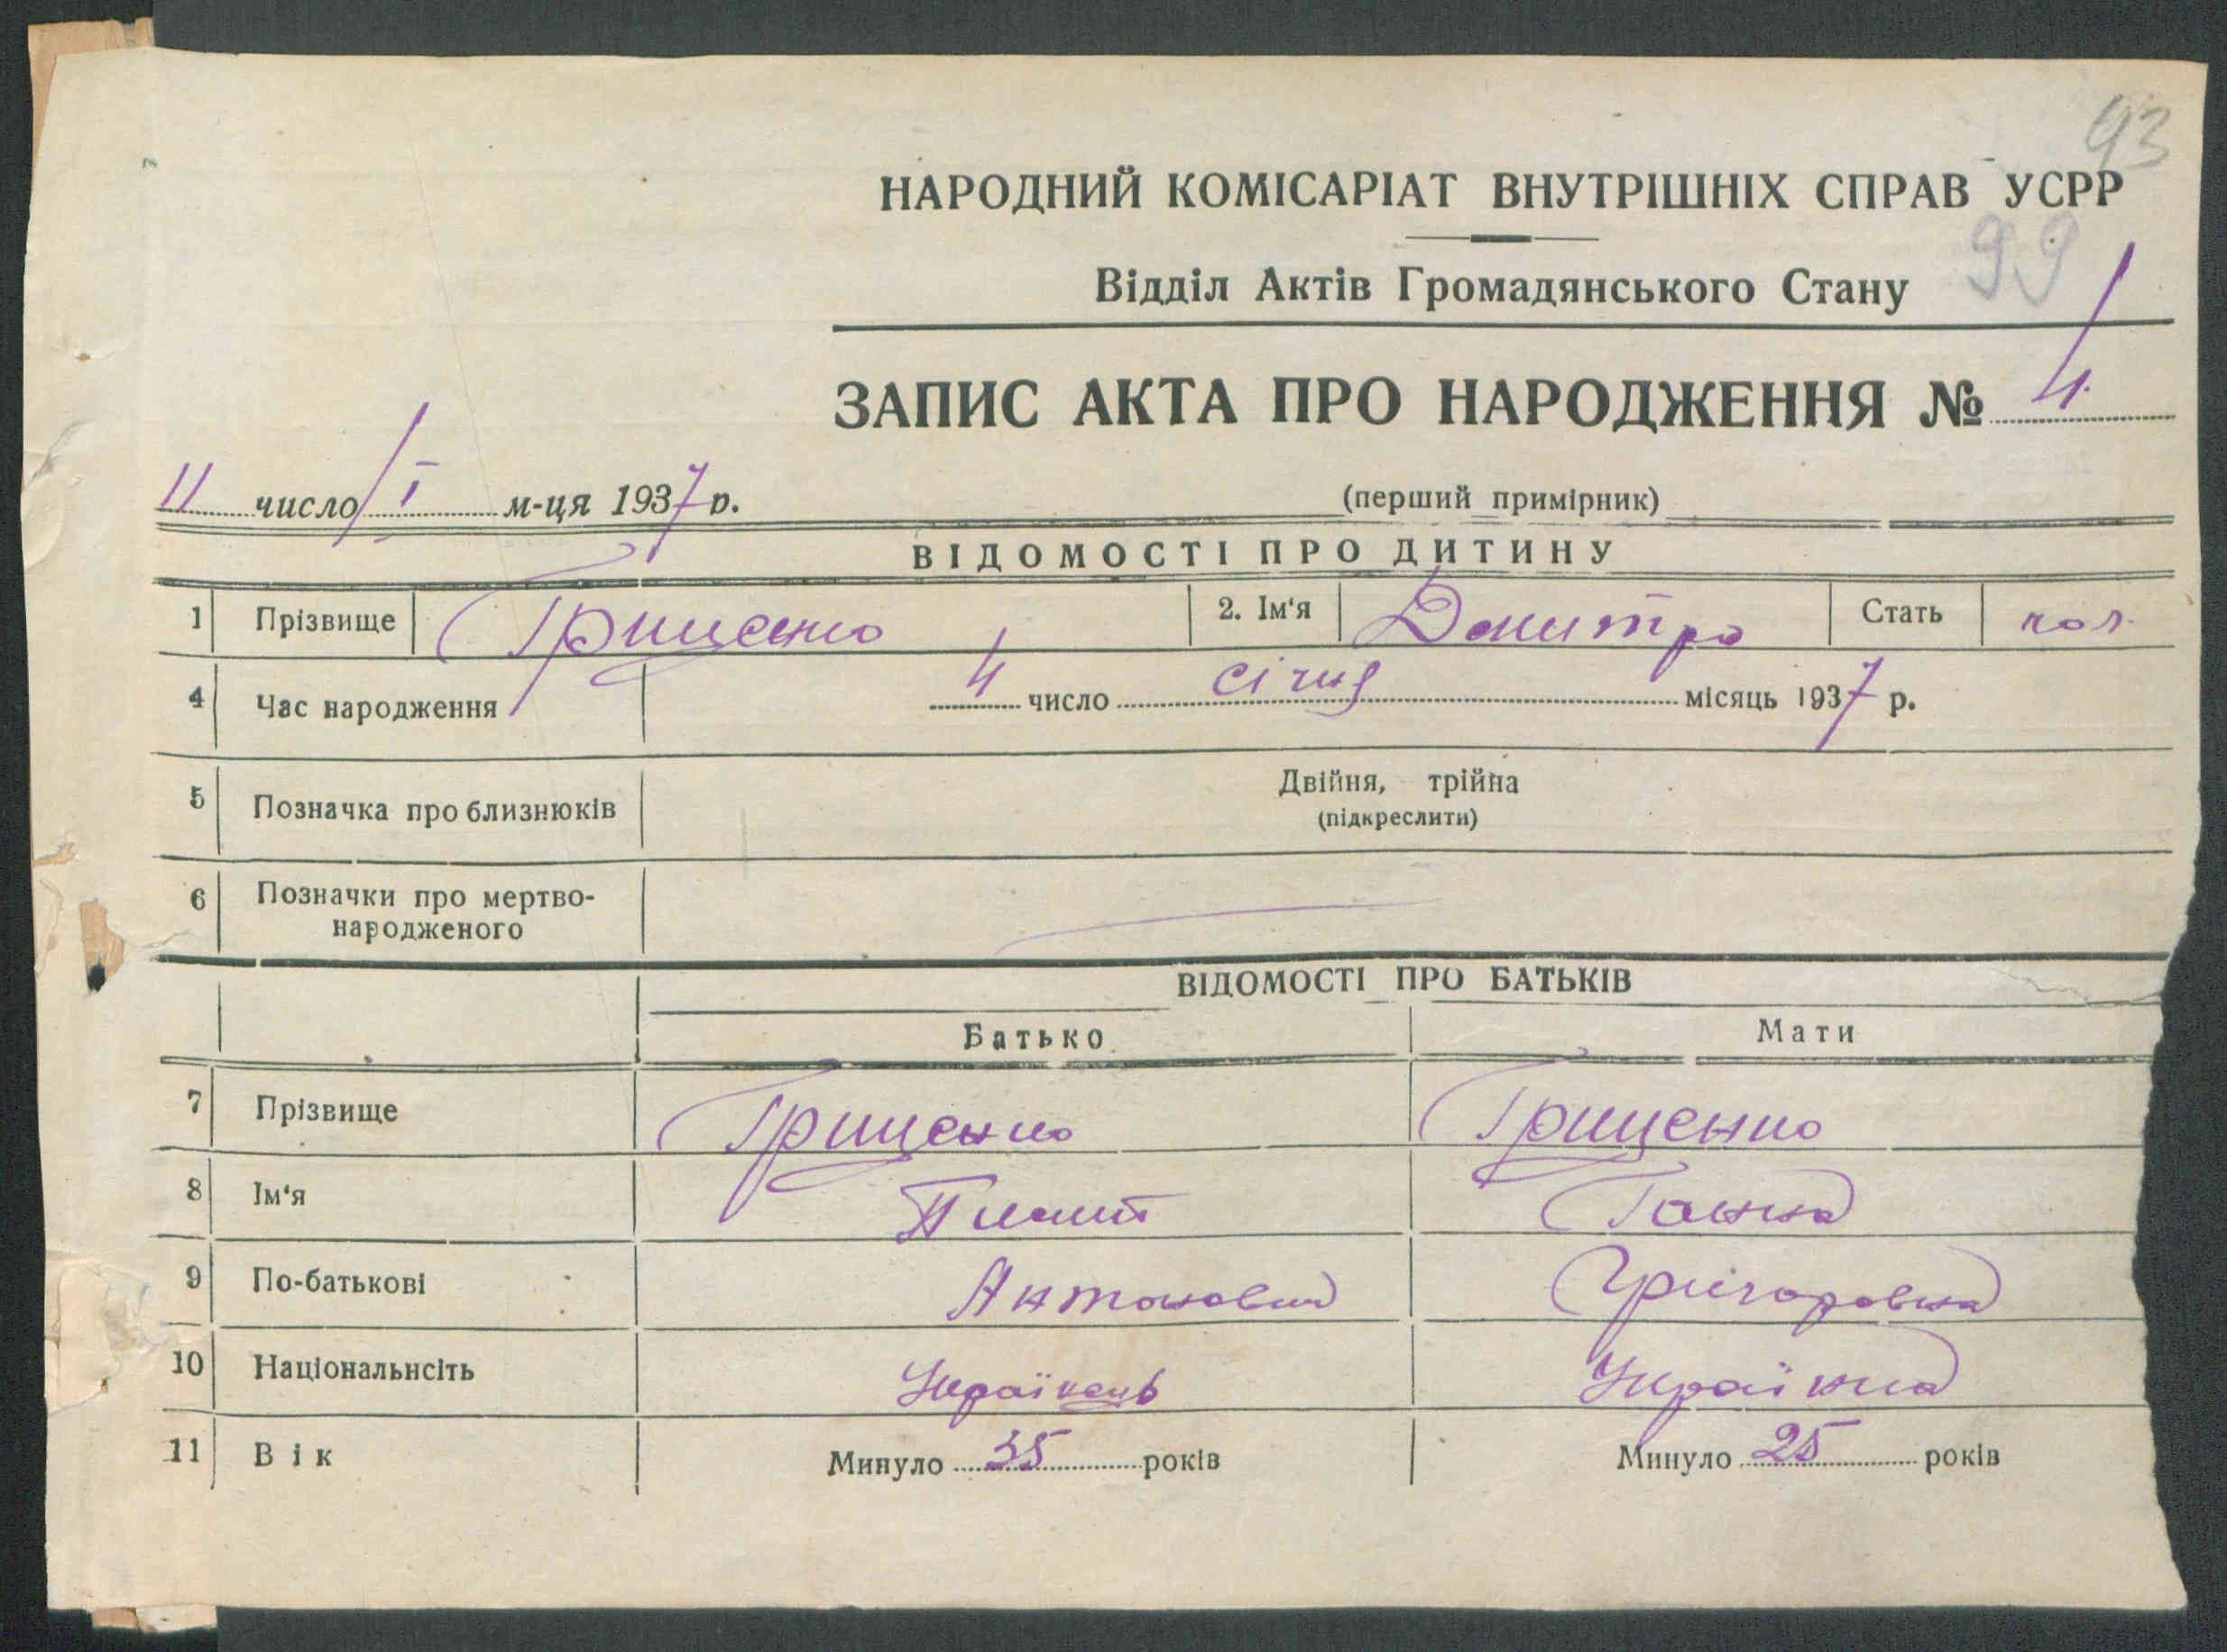 93
НАРОДНИЙ КОМІСАРІАТ ВНУТРІШНІХ СПРАВ УСРР
99
Відділ Актів Громадянського Стану
ЗАПИС АКТА ПРО НАРОДЖЕННЯ № 4
11 число І м-ця 1937 р.
(перший примірник)
ВІДОМОСТІ ПРО ДИТИНУ
1 Прізвище Гриценко 2. Ім'я Дмитро Стать чол.
4 Час народження 4 число січня місяць 1937 р.
5 Позначка про близнюків Двійня, трійна
(підкреслити)
6 Позначки про мертво-
народженого
ВІДОМОСТІ ПРО БАТЬКІВ
Батько Мати
7 Прізвище Гриценко Гриценко
8 Ім'я Пилип Ганна
9 По-батькові Антонович Григоровна
10 Національнсіть Українець Українка
11 Вік Минуло 35 років Минуло 25 років